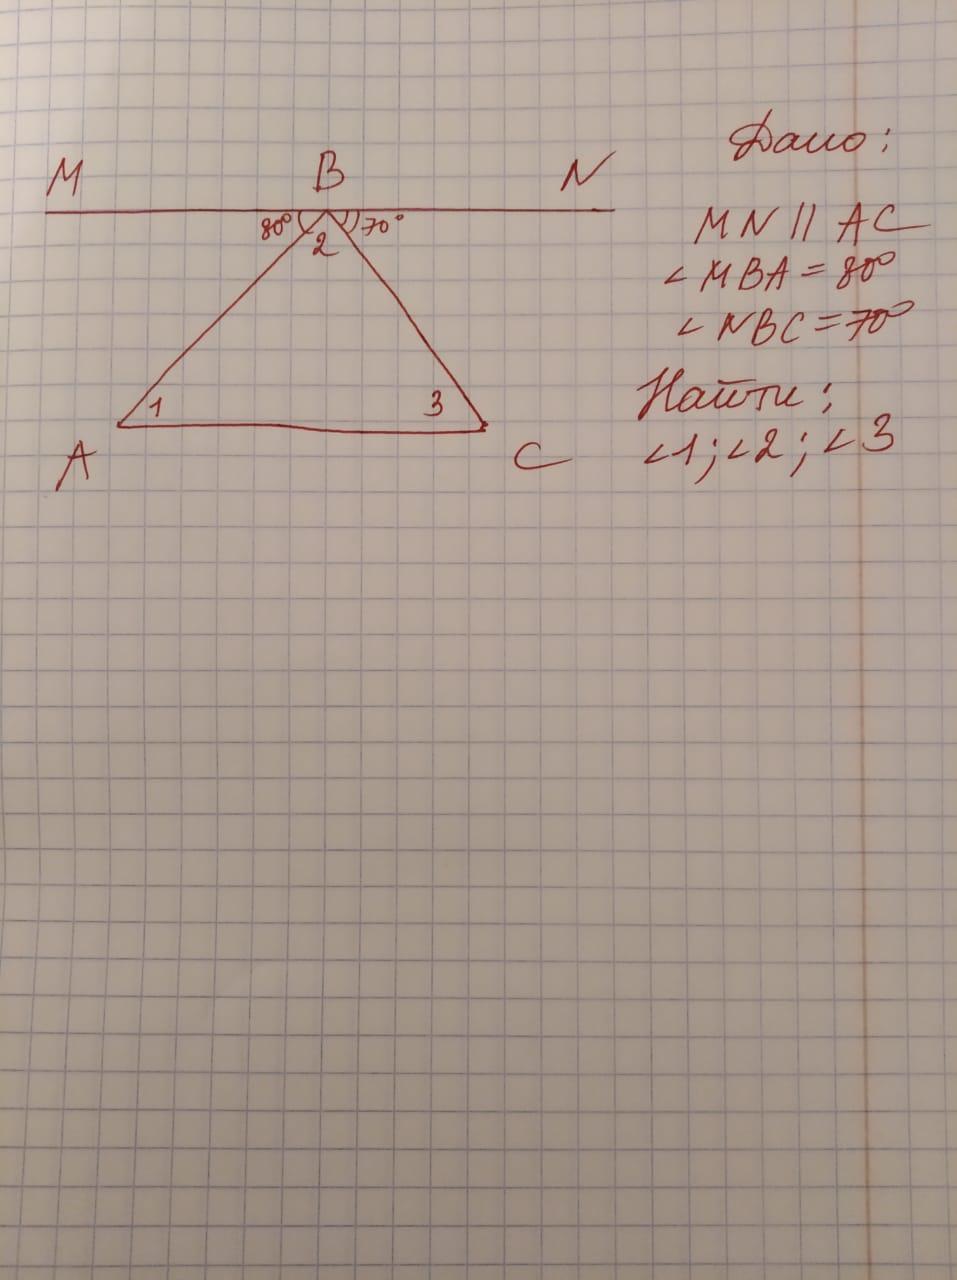 M B N
80° 2 70°
1 3
A C
Дано:
MN || AC
∠MBA = 80°
∠NBC = 70°
Найти:
∠1; ∠2; ∠3